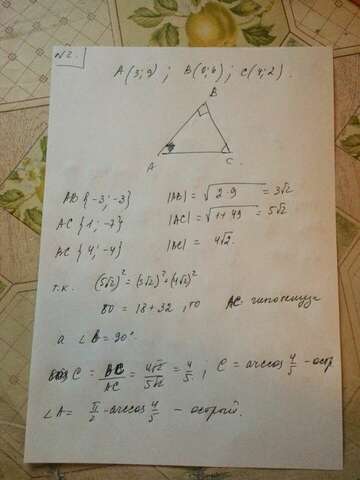 №2.
A(3;9) ; B(0;6) ; C(4;2).
B
A
C
AB{-3;-3} |AB| = √2·9 = 3√2
AC{1;-7} |AC| = √1+49 = 5√2
BC{4;-4} |BC| = 4√2.
т.к. (5√2)² = (3√2)² + (4√2)²
50 = 18+32, то AC гипотенуза
а ∠B = 90°.
cos C = BC/AC = 4√2/5√2 = 4/5, C = arccos 4/5 - остр.
∠A = π/2 - arccos 4/5 - острый.